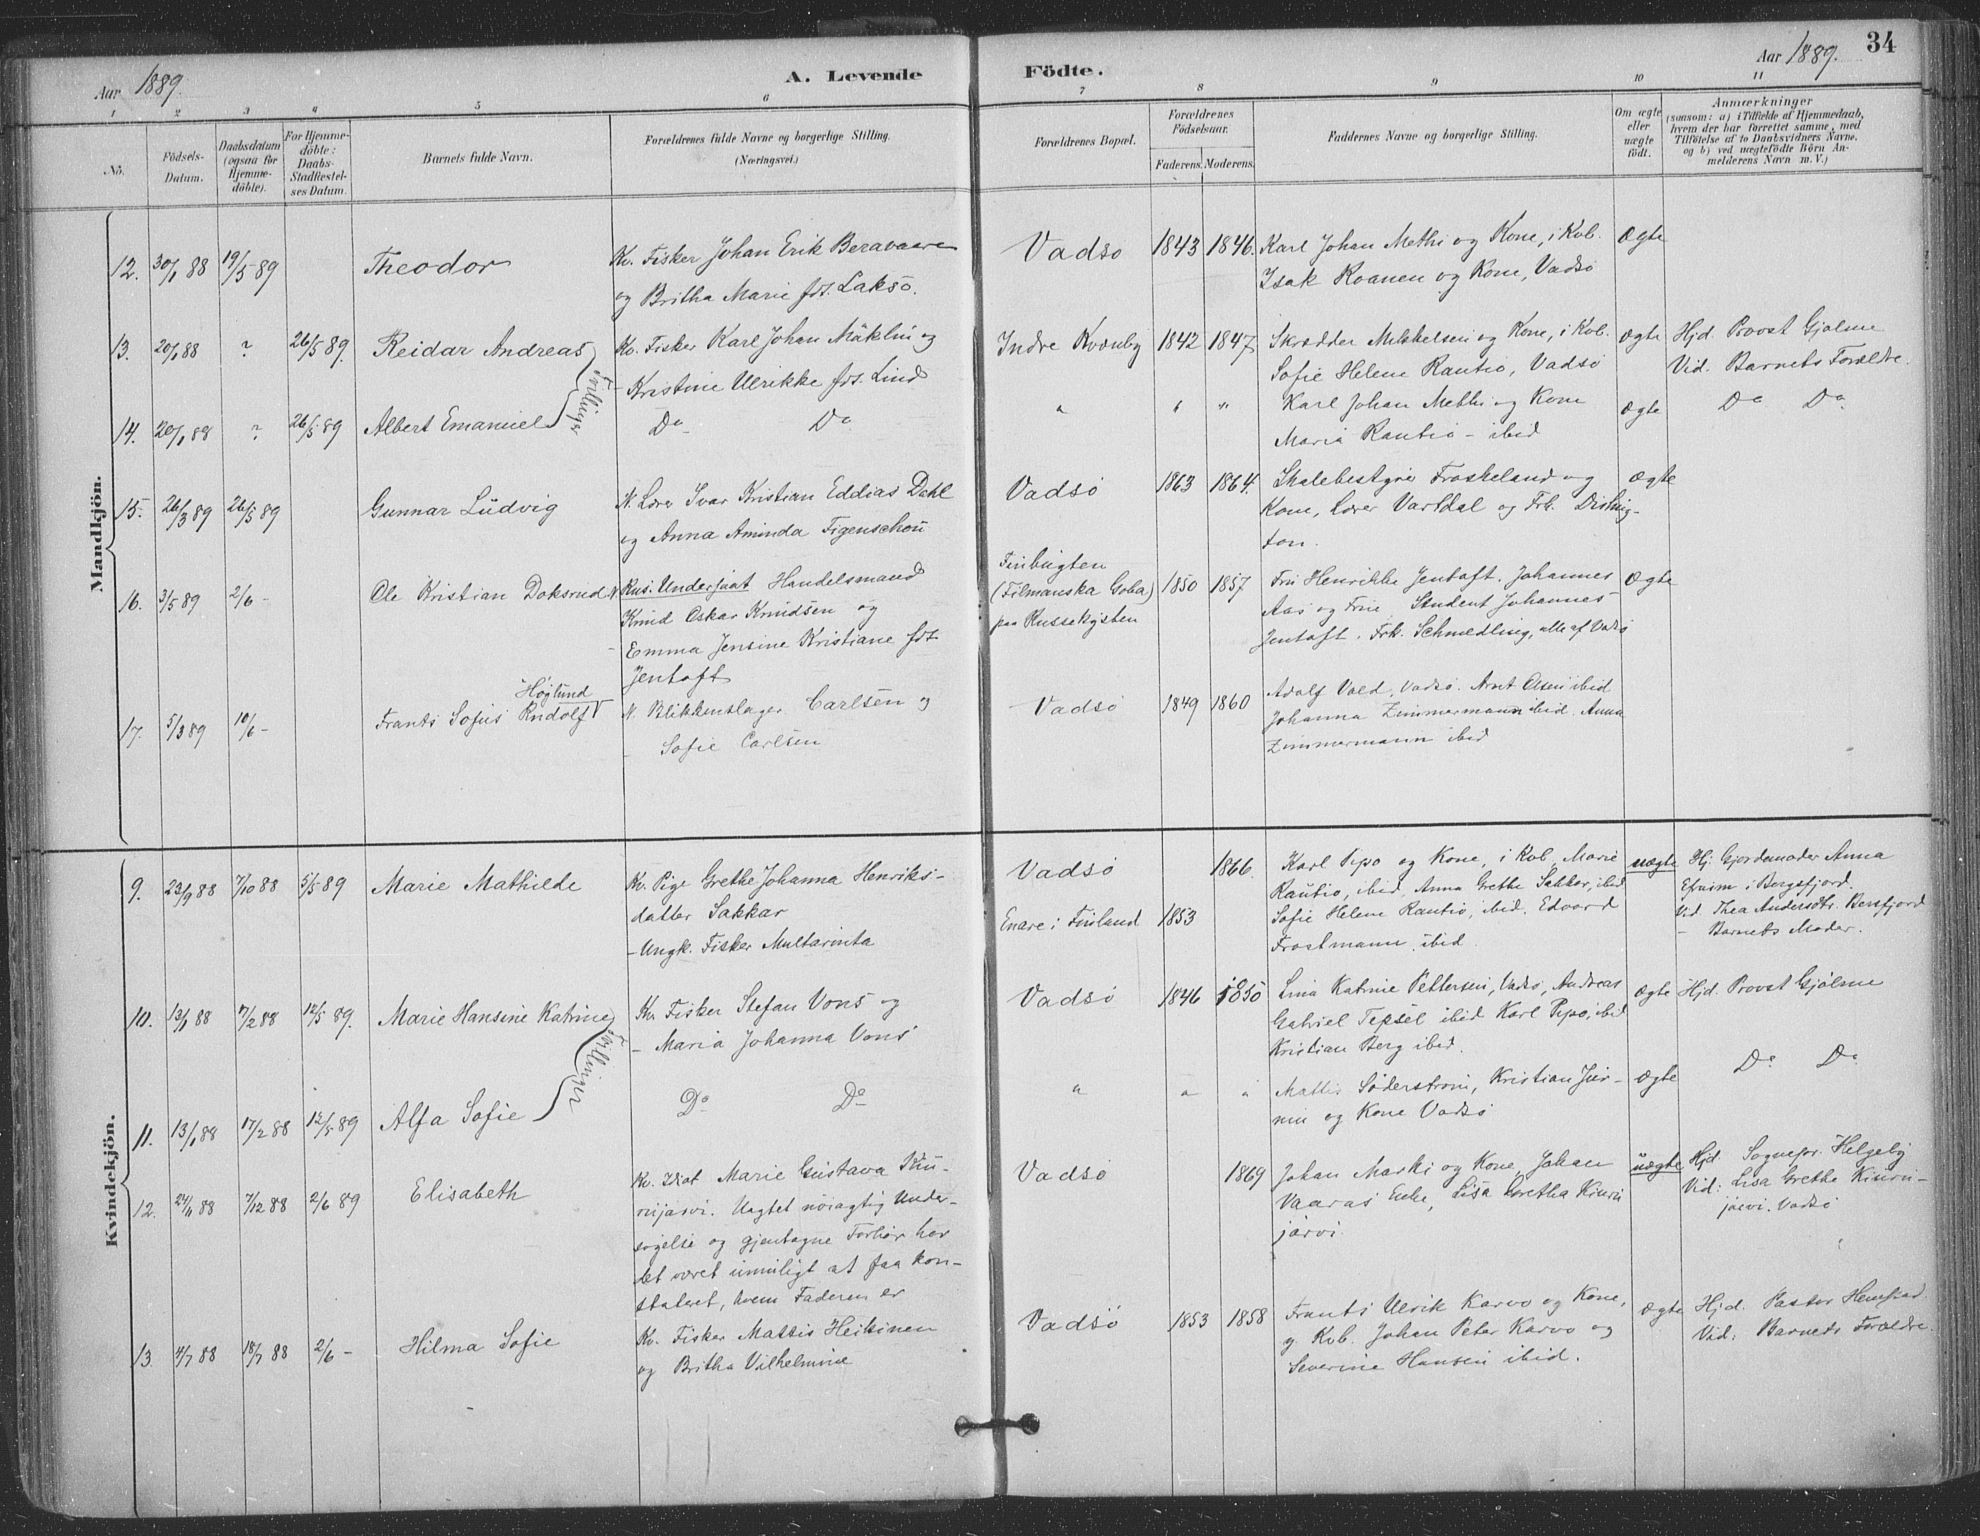 Aar 1889.
A. Levende Födte.
Aar 1889.
34
1 2 3 4 5 6 7 8 9 10 11
No.
Födsels-Datum.
Daabsdatum (ogsaa for Hjemmedöbte).
For Hjemmedöbte: Daabs-Stadfestelses Datum.
Barnets fulde Navn.
Forældrenes fulde Navne og borgerlige Stilling.
(Næringsvei.)
Forældrenes Bopæl.
Forældrenes Födselsaar.
Faderens. Moderens.
Faddernes Navne og borgerlige Stilling.
Om ægte eller uægte födt.
Anmærkninger
(saasom: a) i Tilfælde af Hjemmedaab,
hvem der har forrettet samme, med
Tilföielse af to Daabsvidners Navne.
og b) ved uægtefödte Börn Anmelderens Navn m. V.)
Mandkjön.
12. 30/1 88 19/5 89 Theodor
Kv. Fisker Johan Erik Beravaara
og Britha Marie fdt. Laksö.
Vadsö 1843 1846.
Karl Johan Methi og Kone, i Kvb.
Isak Kvanen og Kone, Vadsö
Ægte
13. 20/1 88 ? 26/5 89. Reidar Andreas
Tvillinger
Kv. Fisker Karl Johan Mäklin og
- Kristine Ulrikke fdt. Lind
Indre Kvænby 1842 1847
Skrædder Mikkelsen og Kone, i Kvb.
Sofie Helene Rautio, Vadsö
ægte
Hjd Provst Gjölme
Vid. Barnets Forældre.
14. 20/1 88 ? 26/5 89 Albert Emanuel
Do Do
" " "
Karl Johan Methi og Kone
Maria Rautio - ibid
ægte
Do Do
15. 26/3 89 26/5 89 Gunnar Lüdvig
N. Lærer Ivar Kristian Eddias Dahl
og Anna Aminda Figenschou
Vadsö 1863 1864.
Skolebestyrer Froskeland og
Kone, Lærer Vartdal og Frk. Dishington.
Ægte
16. 3/5 89 2/6 - Ole Kristian Doksrud
N Rus. Undersaat Handelsmand
Knud Oskar Knudsen og
- Emma Jensine Kristiane fdt.
Jentoft
Finbugten
(Filmanska Goba)
paa Russekysten
1850 1857
Fru Henrikke Jentoft. Johannes
Aas og Frue, Student Johannes
Jentoft. Frk. Schmedling, alle af Vadsö
Ægte
17. 5/3 89 10/6 - Frants Sofus Rudolf Höglund
N. Blikkenslager Carlsen og
- Sofie Carlsen
Vadsö 1849 1860
Adolf Vold, Vadsö. Arnt Olsen ibid
Johanna Zimmermann ibid. Anna
Zimmermann ibid
Kvindekjön.
9. 23/9 88 7/10 88 5/5 89 Marie Mathilde
Kv. Pige Grethe Johanna Henriks-
datter Sakkar
- Ungk. Fisker Multarinta
Vadsö 1866.
Enare i Finland 1853
Karl Pipo og Kone, i Kvb, Marie
Rautio, ibid, Anna Grethe Sakkar, ibid
Sofie Helene Rautio, ibid. Edvard
Frostmann, ibid
uægte
Hj. Gjordemoder Anna
Efraim i Bergsfjord.
Vid. Thea Andersdtr. Bersfjord
- Barnets Moder.
10. 13/1 88 7/2 88 12/5 89. Marie Hansine Katrine
Tvillinger
Kv Fisker Stefan Vons og
- Maria Johanna Vons
Vadsö 1846 1850
Lina Katrine Pettersen, Vadsö, Andreas
Gabriel Tepsel ibid Karl Pipo, ibid
Kristian Berg ibid.
ægte
Hjd. Provst Gjölme
11. 13/1 88 17/2 88 12/5 89 Alfa Sofie
Do Do
" " "
Mattis Söderström, Kristian
og Kone Vadsö
ægte
Do Do
12. 24/11 88 7/12 88 2/6 89 Elisabeth
Kv. Idiot Marie Gustava Kiu-
rujärvi. Uagtet nöiagtig Under-
sögelse og gjentagne Forhör har
det været umuligt at faa kon-
stateret, hvem Faderen er
Vadsö 1869
Johan Marki og Kone, Johan
Vaaras Enke, Lisa Gretha Kiuru
järvi.
uægte
Hjd. Sognepr. Helgeby
Vid: Lisa Grethe Kiuru-
järvi. Vadsö
13 4/7 88 18/7 88 2/6 - Hilma Sofie
Kv. Fisker Mattis Heikinen
og Britha Vilhelmine
Vadsö 1853 1858
Frants Ulrik Karvo og Kone,
y. Kvb. Johan Peter Karvo og
Severine Hansen ibid.
ægte
Hjd. Pastor
Vid: Barnets Forældre.